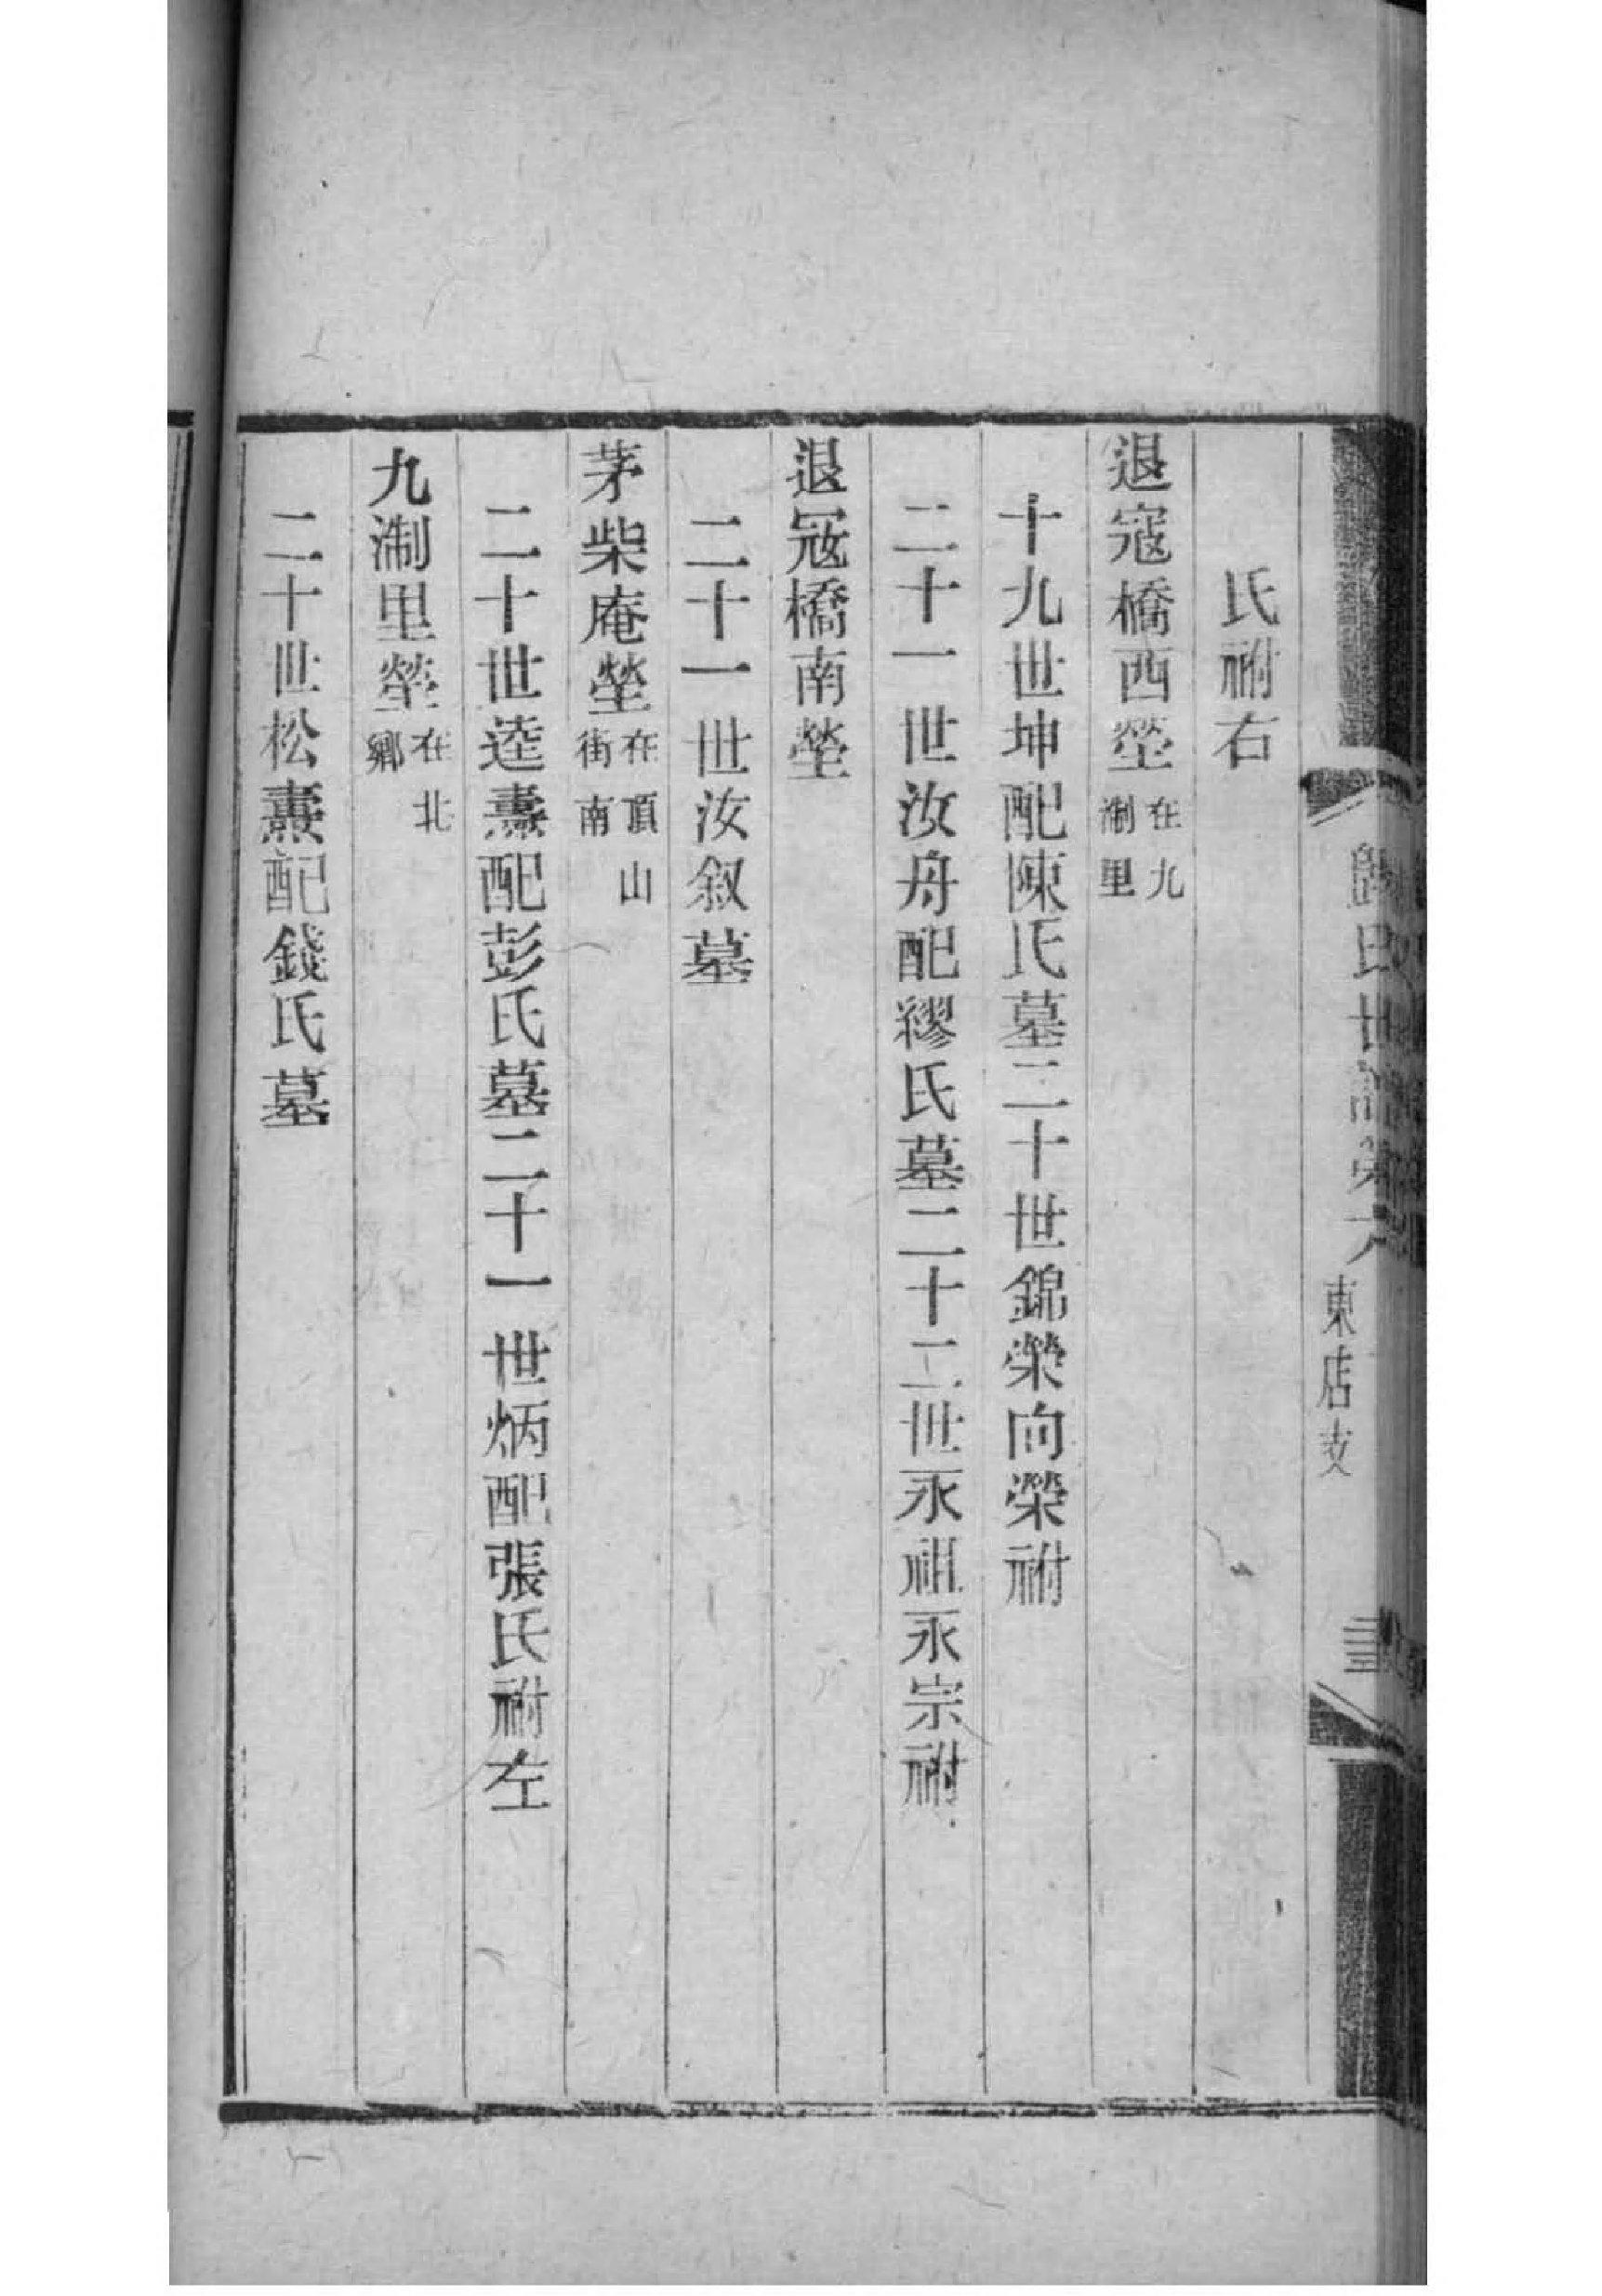 氏祔右
退寇橋西塋在九淛里
十九世坤配陳氏墓二十世錦榮向榮祔
二十一世汝舟配繆氏墓二十二世永祖永宗祔
退寇橋南塋
二十一世汝叙墓
茅柴庵塋在頂山街南
二十世逵燾配彭氏墓二十一世炳配張氏祔左
九淛里塋在北鄉
二十世松燾配錢氏墓
歸氏世譜第六
東店支